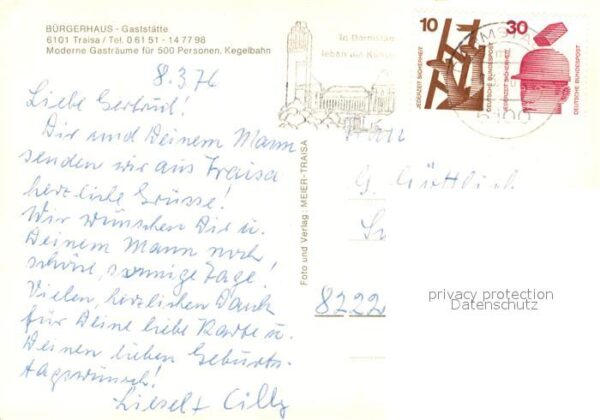 BÜRGERHAUS - Gaststätte
6101 Traisa / Tel. 0 61 51 - 14 77 98
Moderne Gasträume für 500 Personen, Kegelbahn
8.3.76
Liebe Gertrud!
Dir und Deinem Mann
senden wir aus Traisa
herzliche Grüsse!
Wir wünschen Dir u.
Deinem Mann noch
schöne, sonnige Tage!
Vielen, herzlichen Dank
für Deine liebe Karte u.
Deinen lieben Geburts-
tagswünsch!
Liesel + Cilly
Foto und Verlag: MEIER-TRAISA
In Darmstadt
leben die Künste
10
JEDERZEIT SICHERHEIT
DEUTSCHE BUNDESPOST
30
JEDERZEIT SICHERHEIT
DEUTSCHE BUNDESPOST
DARMSTADT
Frau
G. Güttlich
8222
privacy protection
Datenschutz